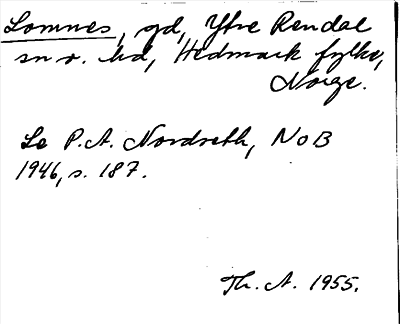 Lomnes, gd, Ytre Rendal
sn o. hd, Hedmark fylke,
Norge.
Se P.A. Nordseth, NoB
1946, s. 187.
Th. A. 1955.